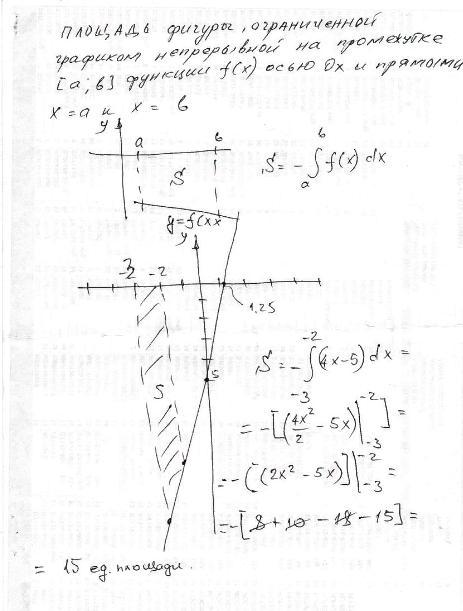 площадь фигуры, ограниченной
графиком непрерывной на промежутке
[a; b] функции f(x) осью Ox и прямыми
x = a и x = b
y
a b
S
S = - ∫ₐᵇ f(x) dx
y = f(x)
y
-3 -2
1,25
S
5
S = - ∫₋₃⁻² (4x-5) dx =
= - [(4x²/2 - 5x)|₋₃⁻²] =
= - [(2x² - 5x)]|₋₃⁻² =
= - [8 + 10 - 18 - 15] =
= 15 ед. площади.